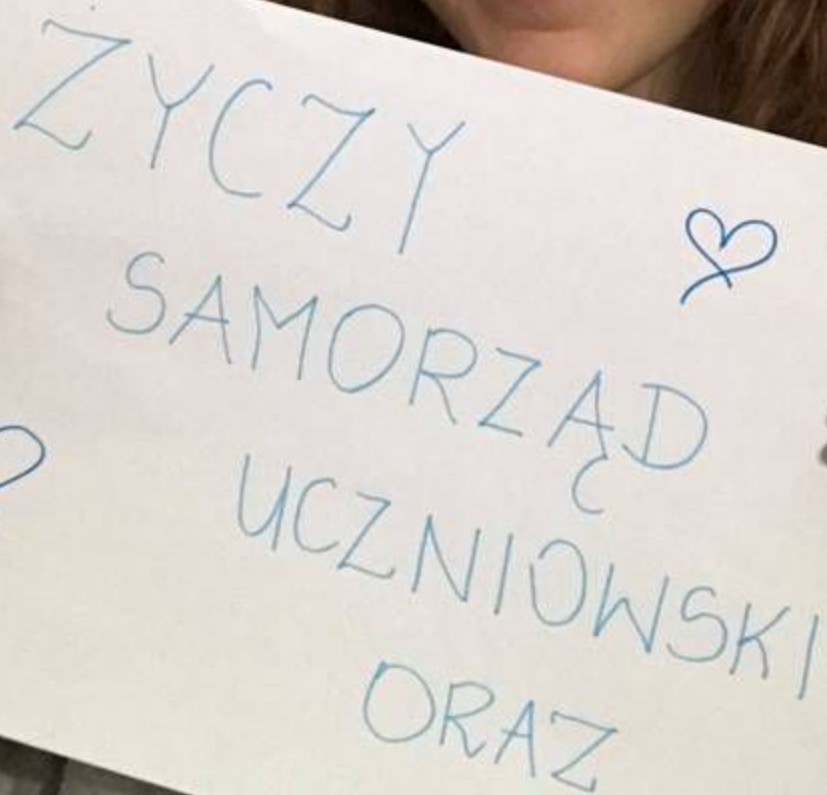 ŻYCZY
SAMORZĄD
UCZNIOWSKI
ORAZ